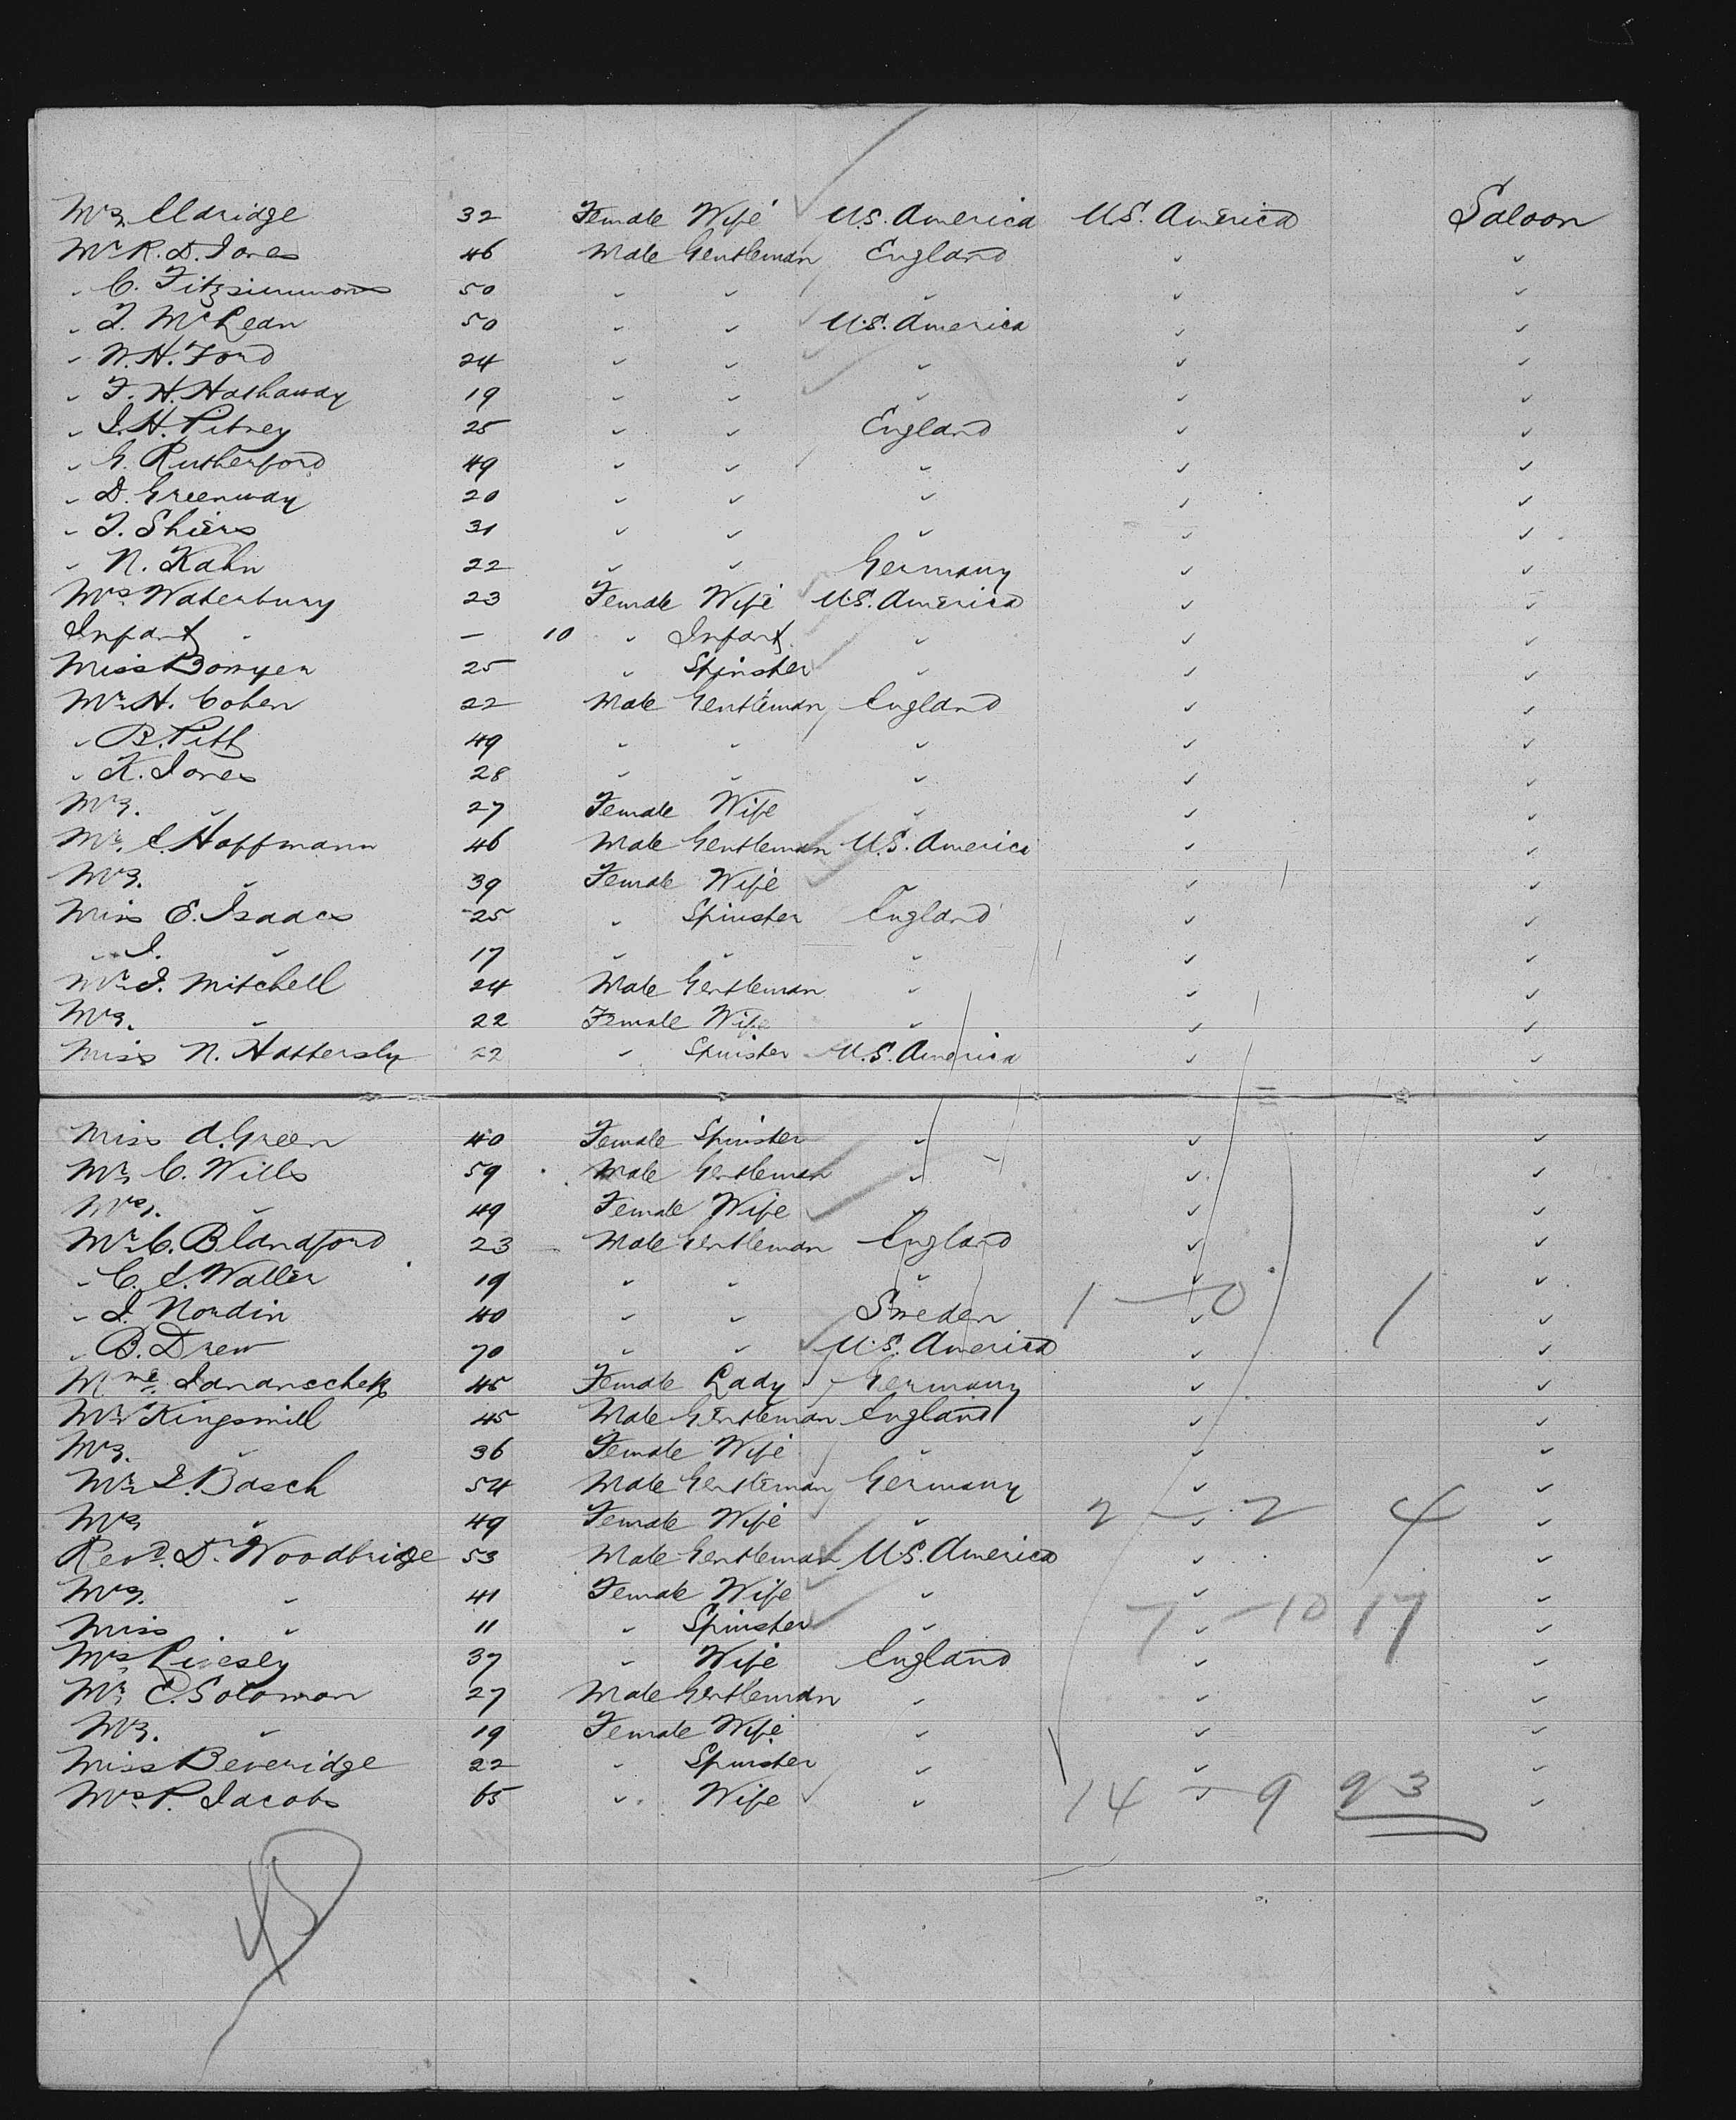 Mrs Eldridge 32 Female Wife U.S. America U.S. America Saloon
Mr R. D. Jones 46 Male Gentleman England " "
" C. Fitzsimmons 50 " " " " "
" J. McLean 50 " " U.S. America " "
" W. H. Ford 24 " " " " "
" F. H. Hathaway 19 " " " " "
" J. H. Pitney 25 " " England " "
" G. Rutherford 49 " " " " "
" D. Greenway 20 " " " " "
" J. Shiers 31 " " " " "
" N. Kahn 22 " " Germany " "
Mrs Waterbury 23 Female Wife U.S. America " "
Infant " — 10 " Infant " " "
Miss Bowyer 25 " Spinster " " "
Mr H. Cohen 22 Male Gentleman England " "
" B. Pitt 49 " " " " "
" K. Jones 28 " " " " "
Mrs. " 27 Female Wife " " "
Mr. C. Hoffmann 46 Male Gentleman U.S. America " "
Mrs. " 39 Female Wife " " "
Miss E. Isaacs 25 " Spinster England " "
" J. " 17 " " " " "
Mr J. Mitchell 24 Male Gentleman " " "
Mrs. " 22 Female Wife " " "
Miss N. Hattersly 22 " Spinster U.S. America " "
Miss A. Green 40 Female Spinster " " "
Mr C. Wills 59 Male Gentleman " " "
Mrs. " 49 Female Wife " " "
Mr C. Blandford 23 Male Gentleman England " "
" C. E. Waller 19 " " " " "
" J. Nordin 40 " " Sweden " " 1 — 0 1
" B. Drew 70 " " U.S. America " "
Mme. Jananschek 45 Female Lady Germany " "
Mr Kingsmill 45 Male Gentleman England " "
Mrs. " 36 Female Wife " " "
Mr S. Basch 54 Male Gentleman Germany " "
Mrs " 49 Female Wife " " " 2 — 2 4
Revd. Dr. Woodbridge 53 Male Gentleman U.S. America " "
Mrs. " 41 Female Wife " " "
Miss " 11 " Spinster " " " 7 — 10 17
Mrs Livesly 37 " Wife England " "
Mr E. Solomon 27 Male Gentleman " " "
Mrs. " 19 Female Wife " " "
Miss Beveridge 22 " Spinster " " "
Mrs P. Jacobs 65 " Wife " " " 14 — 9 23
45